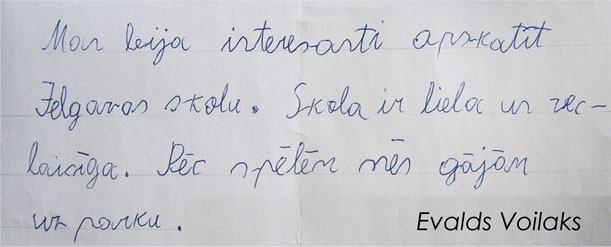 Man bija interesanti apskatīt
Jelgavas skolu. Skola ir liela un vec-
laicīga. Pēc spēlēm mēs gājām
uz parku.
Evalds Voilaks